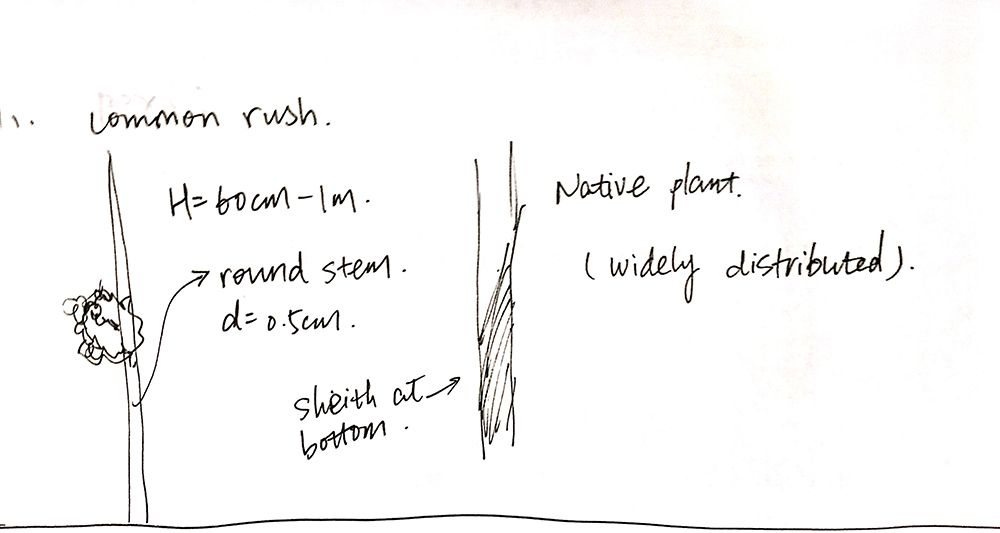 1. common rush.
H= 60cm - 1m.
round stem.
d= 0.5cm.
sheith at
bottom.
Native plant.
(widely distributed).